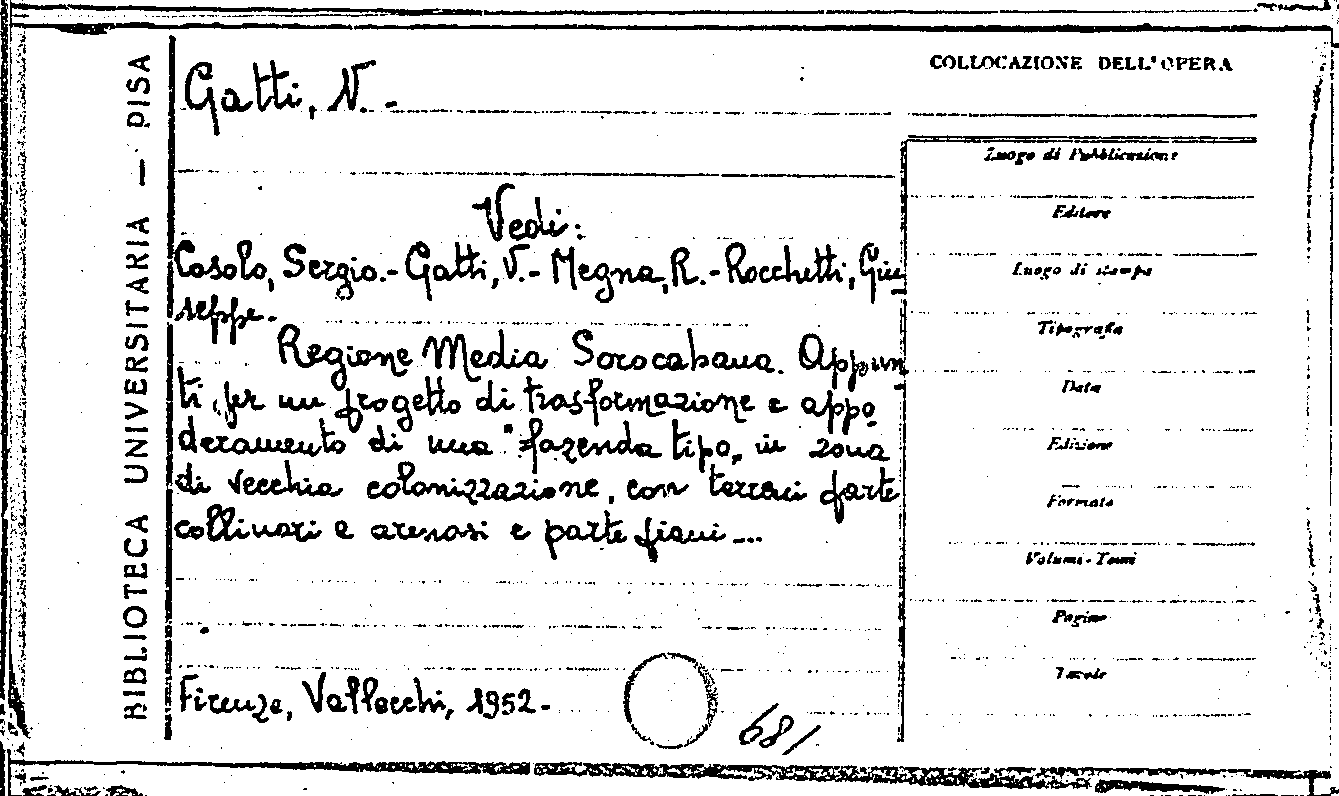 BIBLIOTECA UNIVERSITARIA — PISA
Gatti, V. -
Vedi:
Casolo, Sergio.- Gatti, V.- Megna, R.- Rocchetti, Giu-
seppe.-
Regione Media Sorocabana. Appun-
ti per un progetto di trasformazione e appo-
deramento di una "fazenda tipo" in zona
di vecchia colonizzazione, con terreni parte
collinari e arenosi e parte piani...
Firenze, Vallecchi, 1952.-
681
COLLOCAZIONE DELL'OPERA
Luogo di Pubblicazione
Editore
Luogo di stampa
Tipografia
Data
Edizione
Formato
Volumi-Tomi
Pagine
Tavole